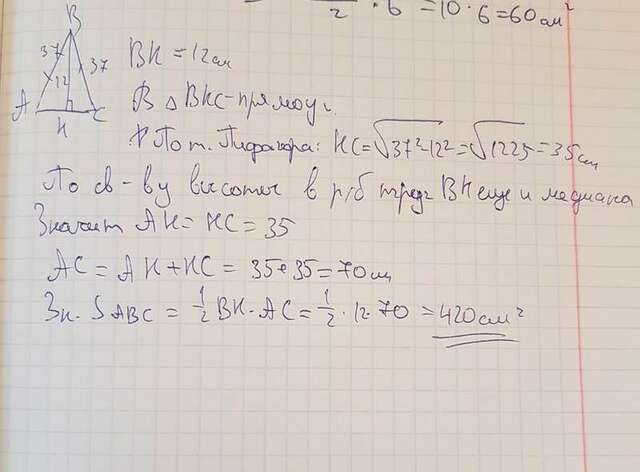 2 · 6 = 10 · 6 = 60 см²
B
37
37
12
A
C
K
BK = 12 см
В △ BKC - прямоуг.
По т. Пифагора: KC = √37²-12² = √1225 = 35 см
По св-ву высоты в р/б треуг BK еще и медиана
Значит AK = KC = 35
AC = AK + KC = 35 + 35 = 70 см
Зн. S ABC = 1/2 BK · AC = 1/2 · 12 · 70 = 420 см²